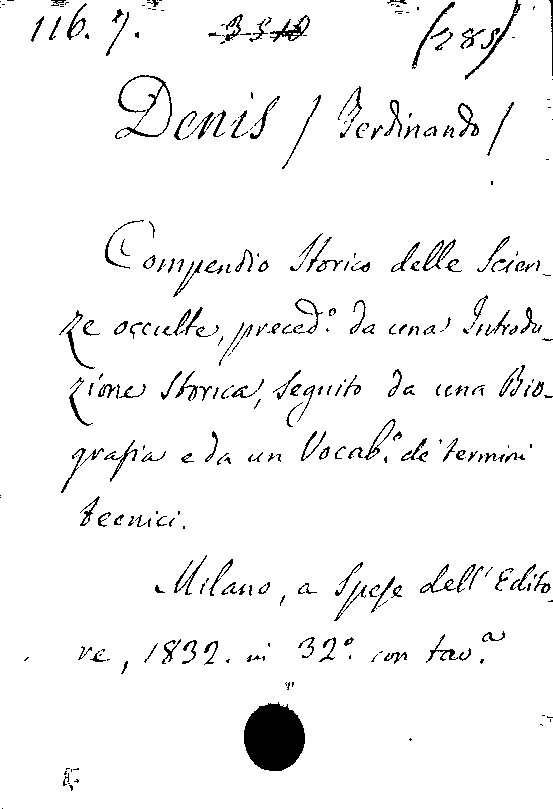 116. 7. 3510 (285)
Denis / Ferdinando /
Compendio Storico delle Scien-
ze occulte, preced.° da una Introdu-
zione Storica, seguito da una Bio-
grafia e da un Vocab.° de' termini
tecnici.
Milano, a Spese dell' Edito-
re, 1832. in 32.° con tav.a